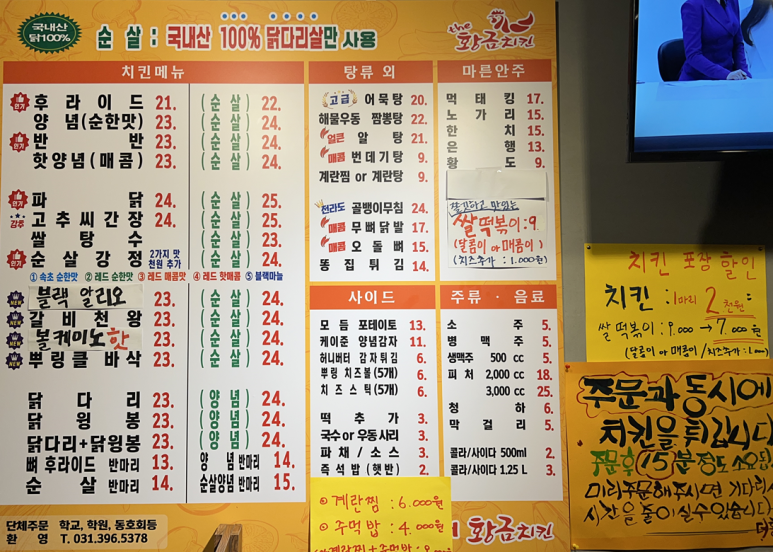 국내산
닭100%
순 살 : 국내산 100% 닭다리살만 사용
the
황금치킨
치킨메뉴
인기 후라이드 21. (순살) 22.
양념(순한맛) 23. (순살) 24.
인기 반반 23. (순살) 24.
핫양념(매콤) 23. (순살) 24.
인기 파닭 24. (순살) 25.
강추 고추씨간장 24. (순살) 25.
쌀탕수 (순살) 23.
인기 순살강정 2가지 맛 천원 추가 (순살) 24.
① 속초 순한맛 ② 레드 순한맛 ③ 레드 매콤맛 ④ 레드 핫매콤맛 ⑤ 블랙마늘
블랙 알리오 23. (순살) 24.
갈비천왕 23. (순살) 24.
볼케이노핫 23. (순살) 24.
뿌링클 바삭 23. (순살) 24.
닭다리 23. (양념) 24.
닭윙봉 23. (양념) 24.
닭다리+닭윙봉 23. (양념) 24.
뼈 후라이드 반마리 13. 양념 반마리 14.
순살 반마리 14. 순살양념 반마리 15.
단체주문 학교, 학원, 동호회등
환 영 T. 031.396.5378
탕류 외
고급 어묵탕 20.
해물우동 짬뽕탕 22.
얼큰 알탕 21.
매콤 번데기탕 9.
계란찜 or 계란탕 9.
전라도 골뱅이무침 24.
매콤 무뼈닭발 17.
매콤 오돌뼈 15.
똥집튀김 14.
사이드
모듬 포테이토 13.
케이준 양념감자 11.
허니버터 감자튀김 6.
뿌링 치즈볼(5개) 6.
치즈스틱(5개) 6.
떡추가 3.
국수or우동사리 3.
파채/소스 3.
즉석밥(햇반) 2.
◎ 계란찜 : 6.000원
◎ 주먹밥 : 4.000원
마른안주
먹태킹 17.
노가리 15.
한치 15.
은행 13.
황도 9.
깔끔하고 맛있는
쌀떡볶이:9.
(달콤이 or 매콤이)
(치즈추가 : 1.000원)
주류 · 음료
소주 5.
병맥주 5.
생맥주 500 cc 5.
피처 2,000 cc 18.
3,000 cc 25.
청하 6.
막걸리 5.
콜라/사이다 500ml 2.
콜라/사이다 1.25 L 3.
황금치킨
치킨 포장 할인
치킨 : 1마리 2천원
쌀떡볶이 : 9.000 → 7.000원
(달콤이 or 매콤이/치즈추가 : 1.000)
주문과 동시에
치킨을 튀깁니다
주문후 15분정도 소요됨
미리주문해주시면 기다리
시간을 줄이실수있습니다